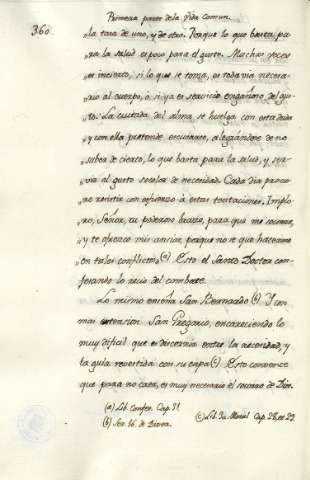 Primera parte de la Vida Comun.
360.
„la tasa de uno, y de otro. Porque lo que basta pa-
„ra la salud es poco para el gusto. Muchas veces
„es incierto, si lo que se toma, es todavia necesa-
„rio al cuerpo, ó si ya es servicio engañoso del gus-
„to. La cuitada del alma, se huelga con esta duda
„y con ella pretende escusarse, alegandose de no
„saber de cierto, lo que basta para la salud, y ser-
„via al gusto socolor de necesidad. Cada dia procu-
„ro resistir con esfuerzo á estas tentaciones. Implo-
„ro, Señor, tu poderoso brazo, para que me socorras,
„y te ofrezco mis ansias, porque no se que hacerme
„en tales conflictos (a) Esto el Santo Doctor con-
fesando lo recio del combate.
Lo mismo enseña San Bernardo (b) Y con
mas extension San Gregorio, encareciendo lo
muy dificil que es discernir entre la necesidad, y
la gula revestida con su capa (c) Esto convence
que para no caer, es muy necesario el socorro de Dios.
(a) Lib. Confes. Cap. 31
(b) Ser. 16. de Divers.
(c) Lib. 30. Moral. Cap. 28. et 29